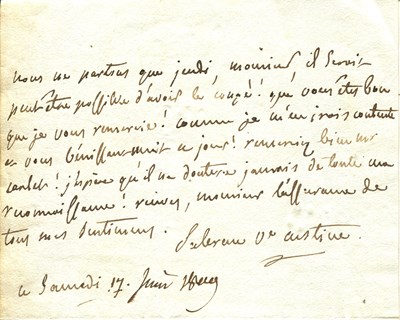 nous ne partons que jeudi, monsieur il seroit
peut être possible d'avoir le coupé! que vous êtes bon
que je vous remercie! comme je m'en irois contente
et vous bénissant nuit et jour! remerciez bien mr
j'espère qu'il ne doutera jamais de toute ma
reconnoissance! recevez, monsieur l'assurance de
tous mes sentimens.
ce Samedi 17. Juin